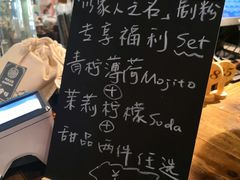 以家人之名」剧粉
专享福利Set
青柠薄荷Mojito
+
茉莉柠檬Soda
+
甜品两件任选